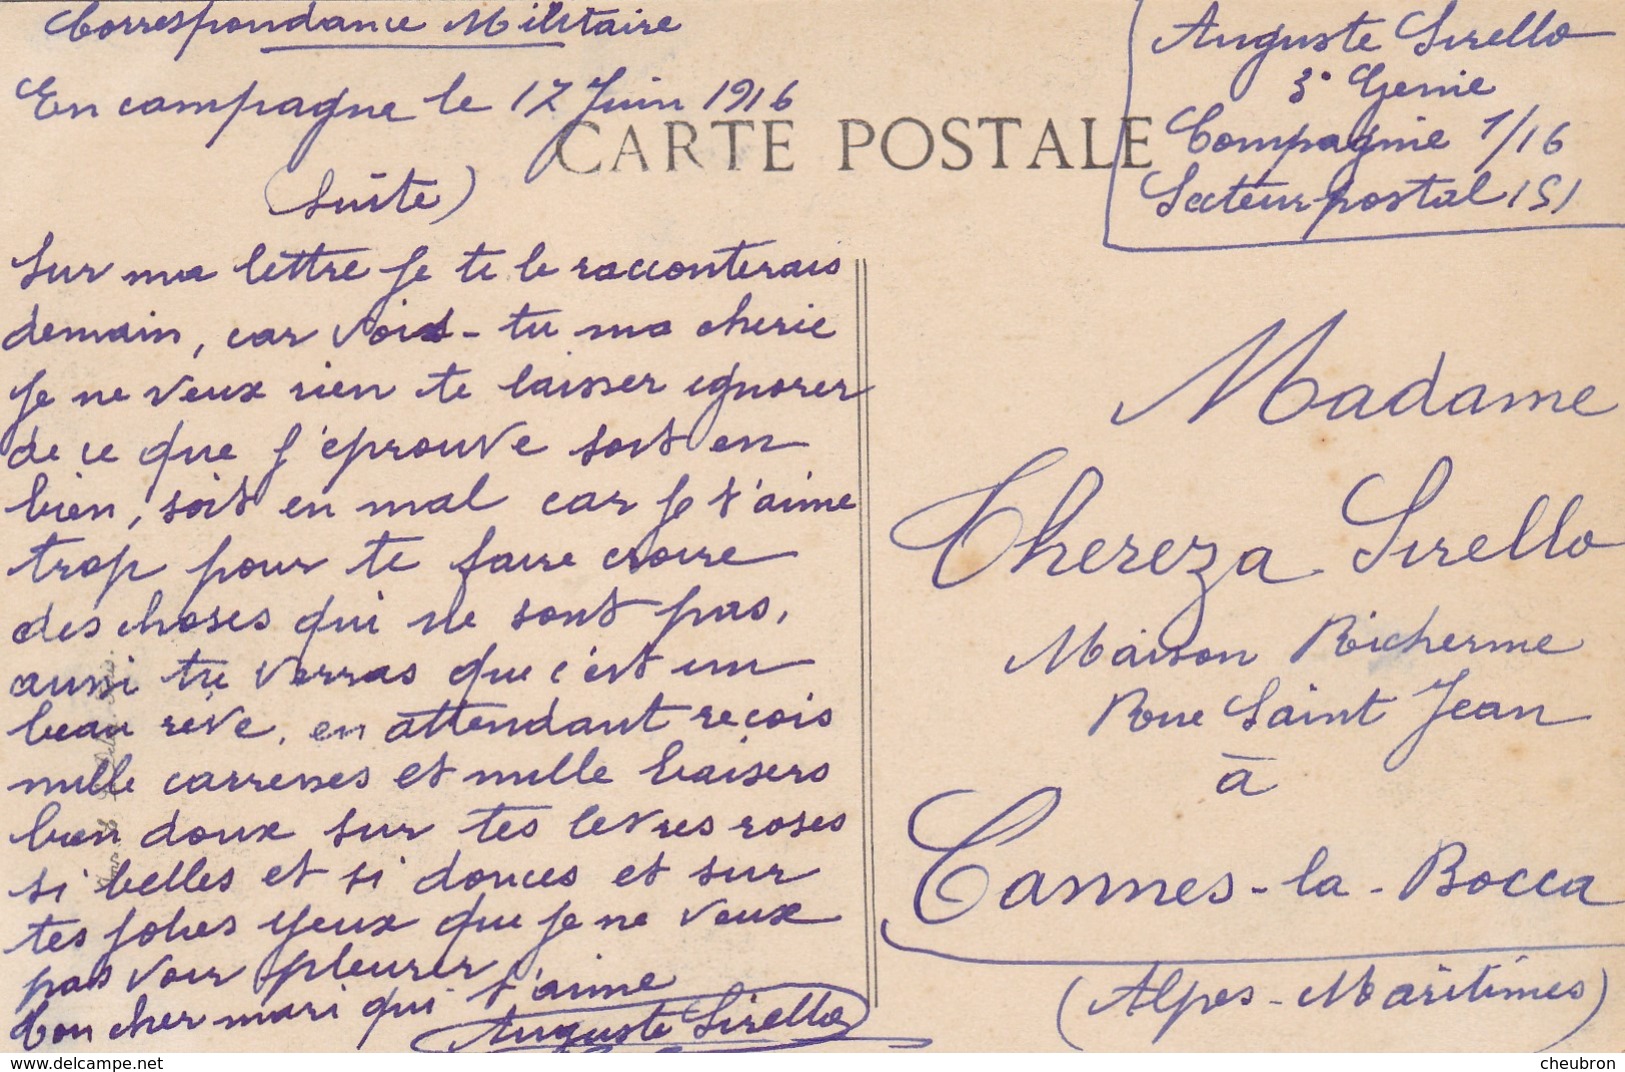 Correspondance Militaire
En campagne le 17 Juin 1916
CARTE POSTALE
(Suite)
Sur ma lettre je te le racconterais
demain, car vois-tu ma cherie
je ne veux rien te laisser ignorer
de ce que j'eprouve soit en
bien, soit en mal car je t'aime
trop pour te faire croire
des choses qui ne sont pas,
aussi tu verras que c'est un
beau rêve, en attendant reçois
mille carresses et mille baisers
bien doux sur tes levres roses
si belles et si douces et sur
tes jolies yeux que je ne veux
pas voir pleurer
ton cher mari qui t'aime
Auguste Sirello
Auguste Sirello
3e Genie
Compagnie 1/16
Secteur postal 151
Madame
Thereza Sirello
Maison Richerme
Rue Saint Jean
à
Cannes-la-Bocca
(Alpes-Maritimes)
delcampe.net
cheubron